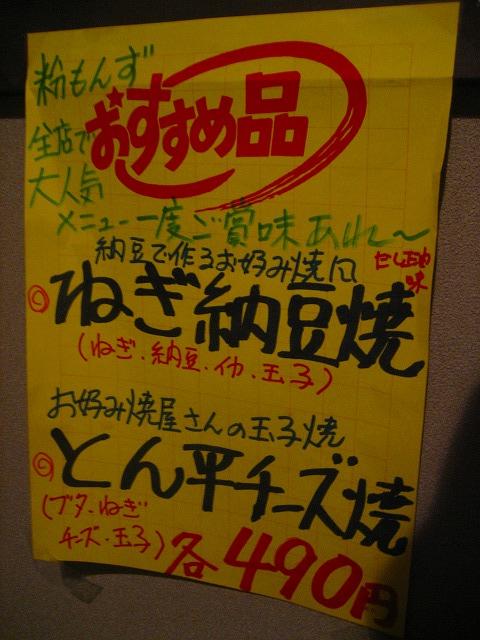 粉もんず
全店で
大人気
おすすめ品
メニュー一度ご賞味あれ〜
納豆で作るお好み焼に
だし正油味
◎ねぎ納豆焼
(ねぎ、納豆、イカ、玉子)
お好み焼屋さんの玉子焼
◎とん平チーズ焼
(ブタ、ねぎ
チーズ・玉子)
各490円